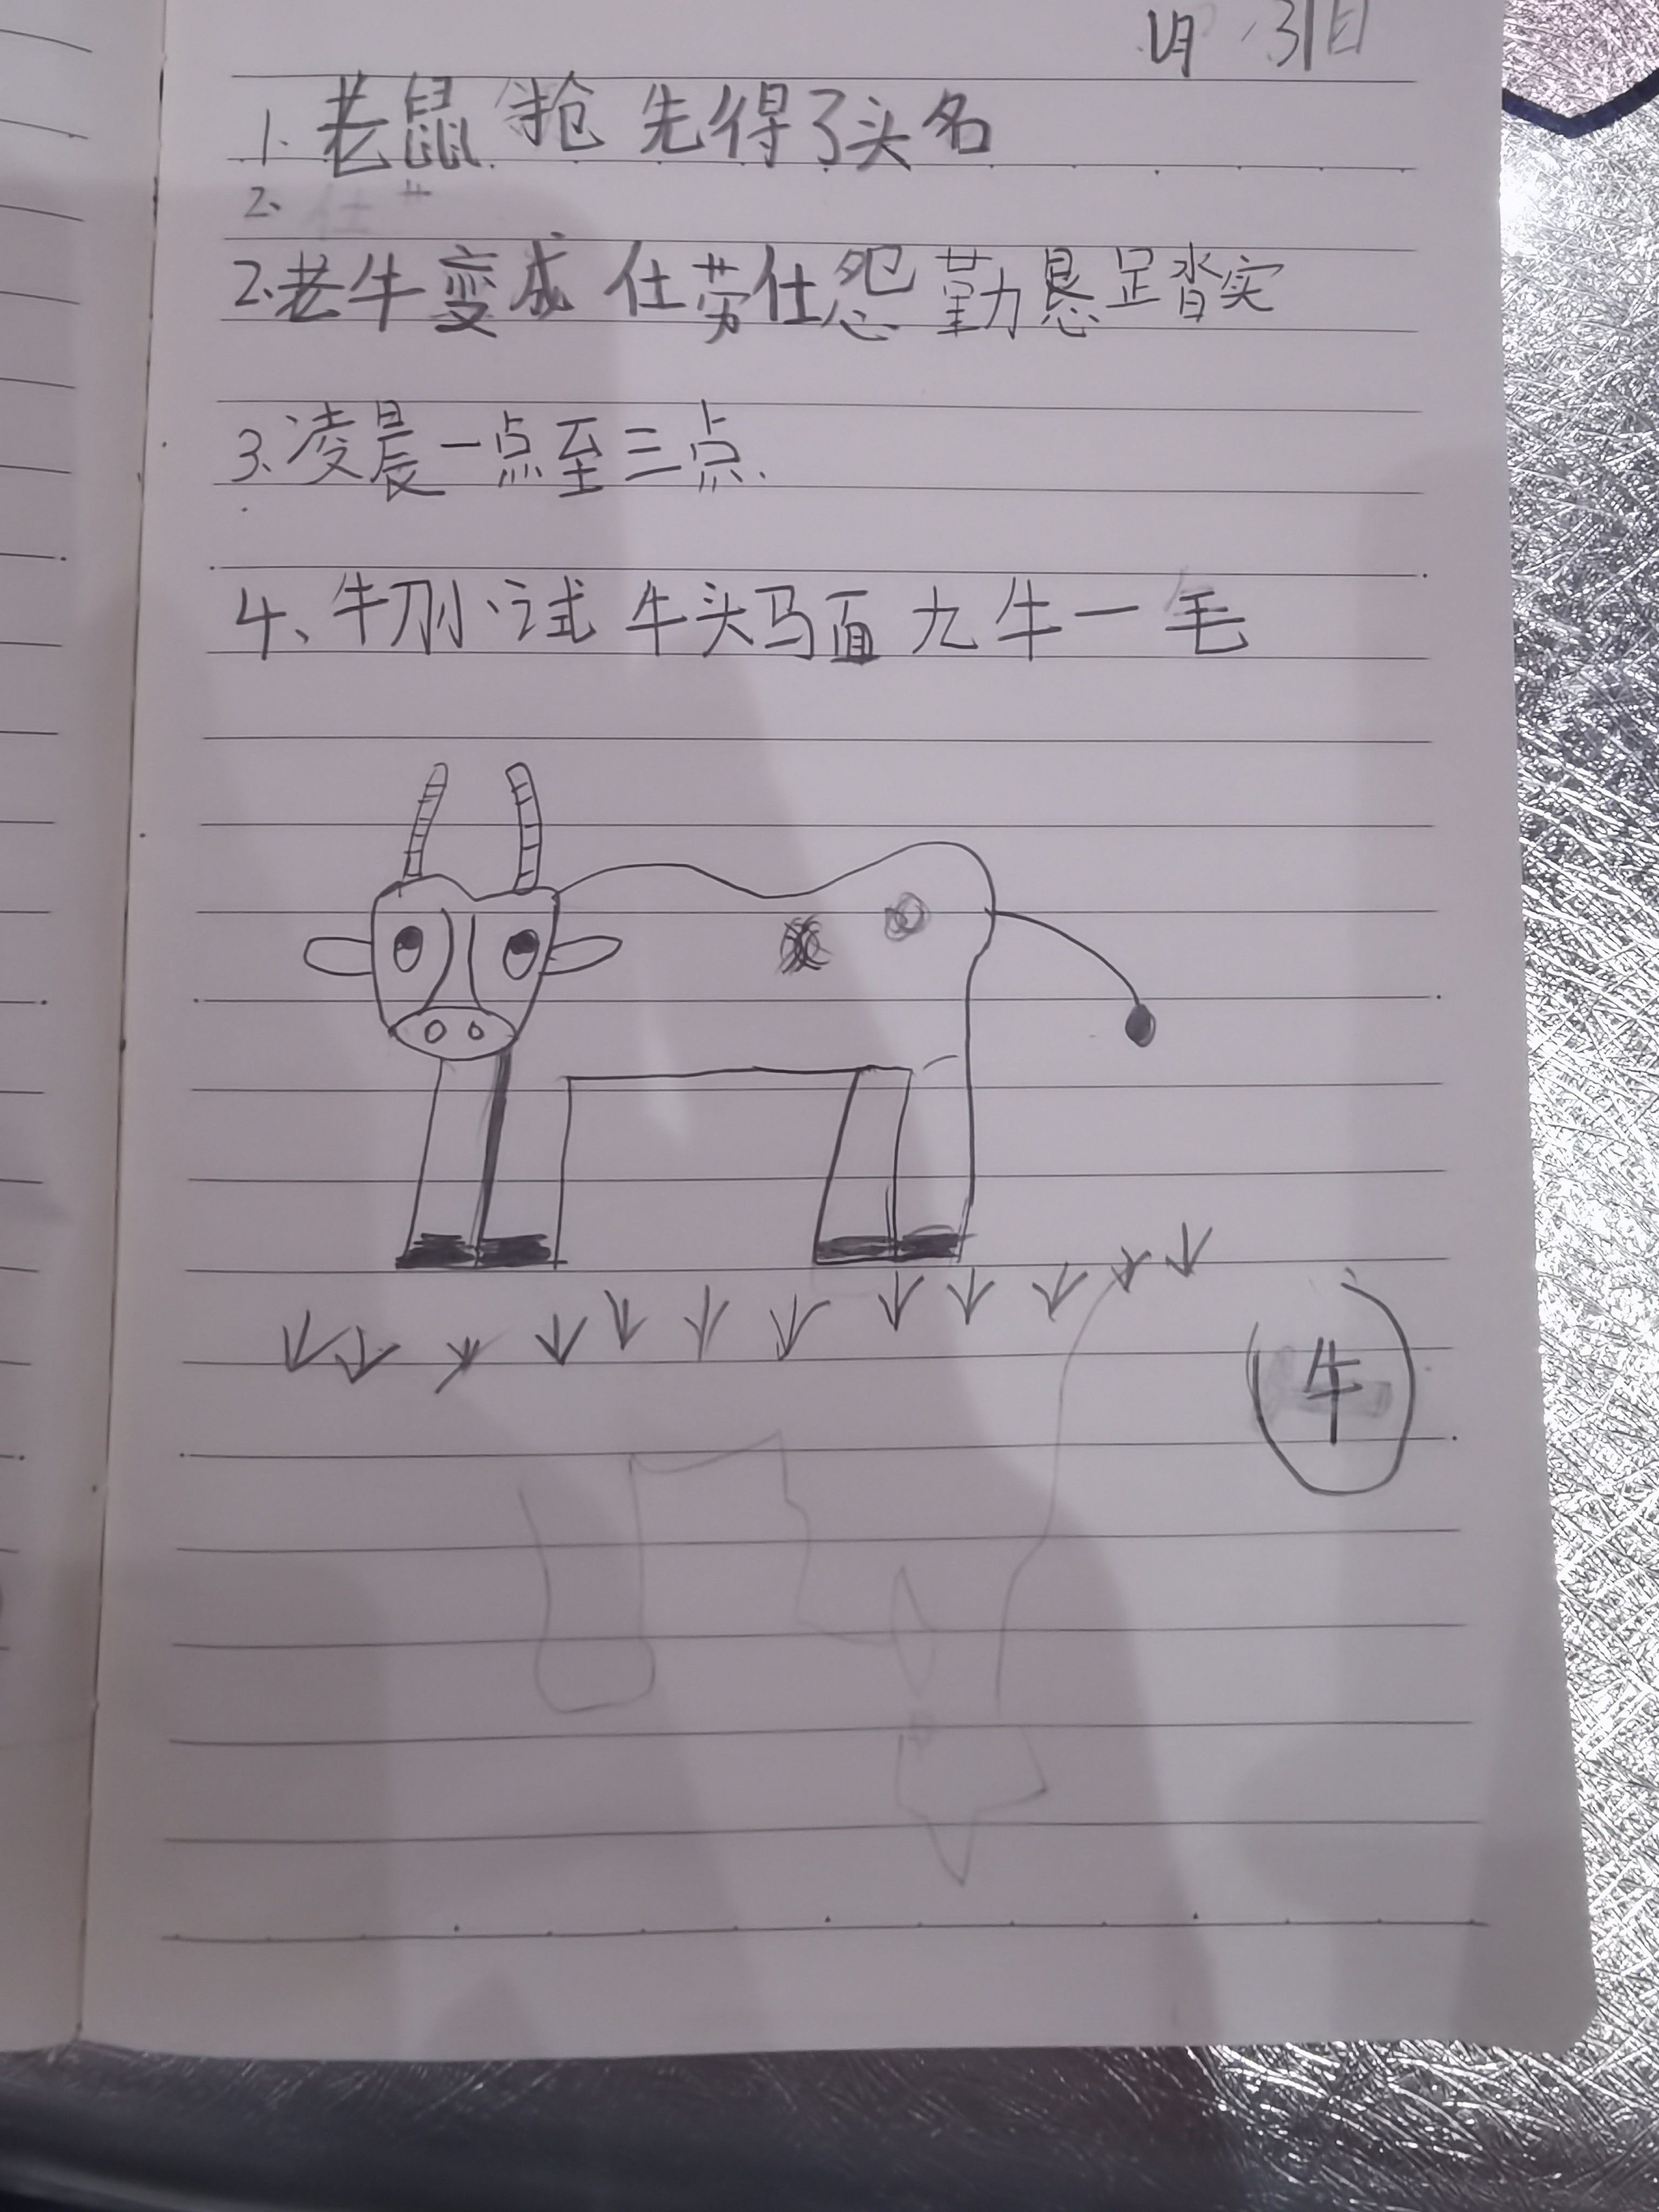 1月31日
1.老鼠抢先得了头名
2.
2.老牛变成仕劳仕怨勤恳足踏实
3.凌晨一点至三点.
4、牛刀小试 牛头马面 九牛一毛
牛